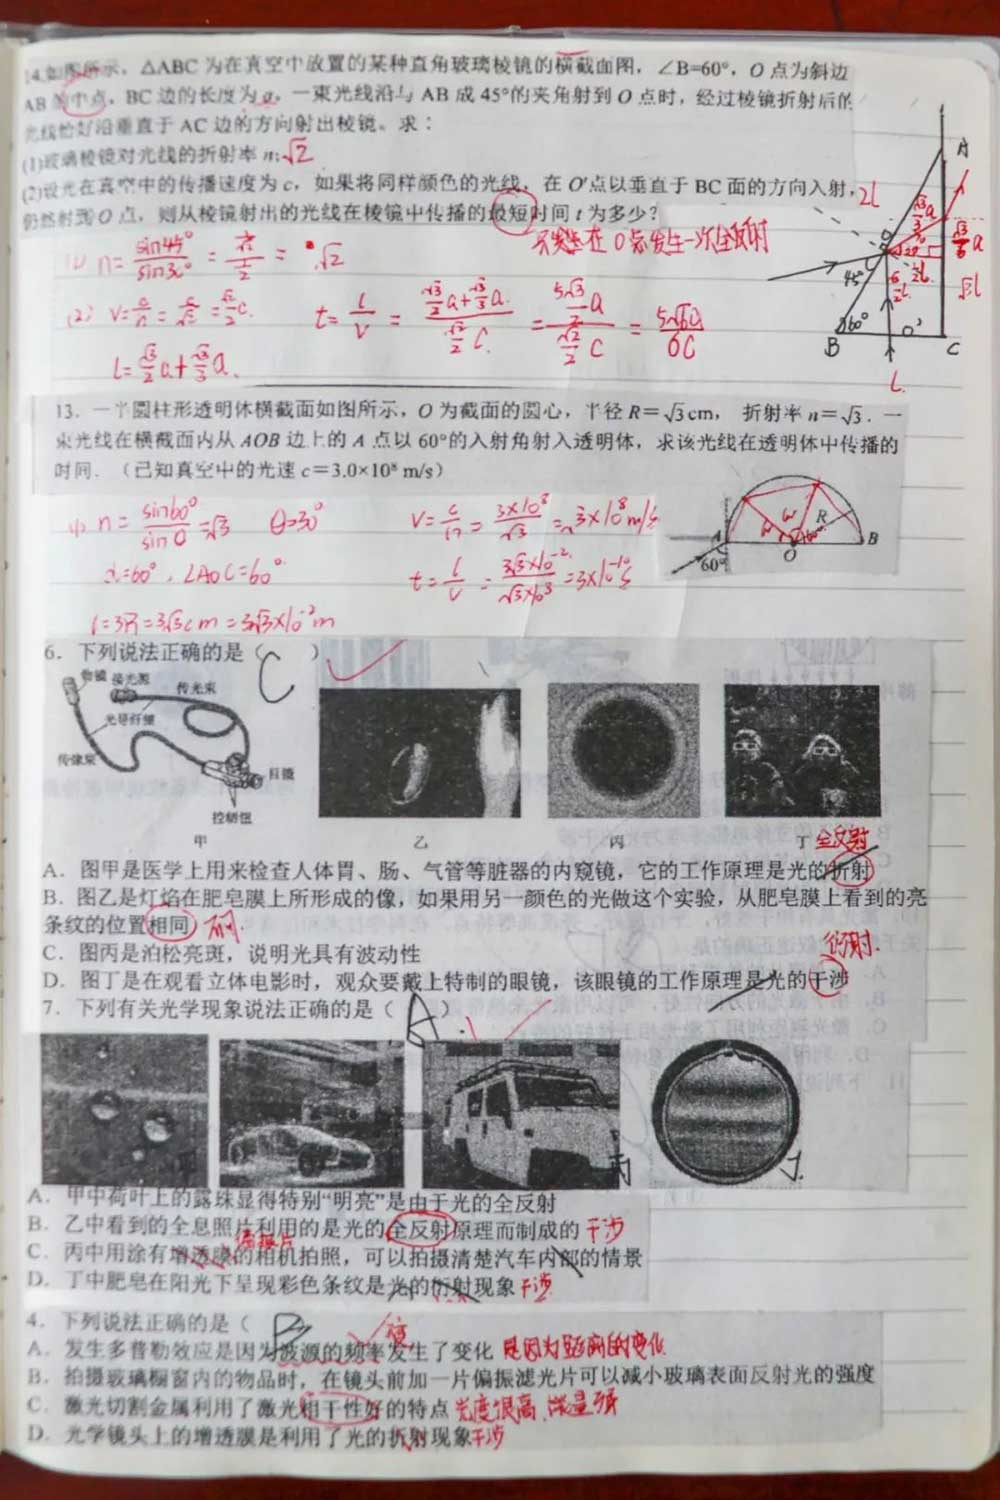 14.如图所示，△ABC 为在真空中放置的某种直角玻璃棱镜的横截面图，∠B=60°，O 点为斜边
AB 的中点，BC 边的长度为 a。一束光线沿与 AB 成 45°的夹角射到 O 点时，经过棱镜折射后的
光线恰好沿垂直于 AC 边的方向射出棱镜。求：
(1)玻璃棱镜对光线的折射率 n; √2
(2)设光在真空中的传播速度为 c，如果将同样颜色的光线，在 O′点以垂直于 BC 面的方向入射，
仍然射到 O 点，则从棱镜射出的光线在棱镜中传播的最短时间 t 为多少？
在 O 点发生一次全反射
(1) n=sin45°/sin30° = = √2
(2) v=c/n = c/√2 = √2/2 c. t= l/v = (√3/2 a+√3/3 a)/(√2/2 c) = /(√2/2 c) =
l=√3/2 a+√3/3 a.
A
2l
√3/3 a
√3/6 a
O
45°
60°
B
O′
C
√3l
L
13．一半圆柱形透明体横截面如图所示，O 为截面的圆心，半径 R＝√3 cm， 折射率 n＝√3．一
束光线在横截面内从 AOB 边上的 A 点以 60°的入射角射入透明体，求该光线在透明体中传播的
时间．（已知真空中的光速 c＝3.0×10⁸ m/s）
(1) n= sin60°/sinθ =√3 θ=30° v=c/n = 3×10⁸/√3 =√3×10⁸m/s
α=60°，∠AOC=60° t= l/v = 3√3×10⁻²/√3×10⁸ =3×10⁻¹⁰s
l=3R=3√3cm=3√3×10⁻²m
A 60° O R B
6．下列说法正确的是（C ）
物镜 接光源 传光束
光导纤维
传像束
目镜
控制钮
甲 乙 丙 丁
全反射
A．图甲是医学上用来检查人体胃、肠、气管等脏器的内窥镜，它的工作原理是光的折射
B．图乙是灯焰在肥皂膜上所形成的像，如果用另一颜色的光做这个实验，从肥皂膜上看到的亮
条纹的位置相同
C．图丙是泊松亮斑，说明光具有波动性
衍射.
D．图丁是在观看立体电影时，观众要戴上特制的眼镜，该眼镜的工作原理是光的干涉
7．下列有关光学现象说法正确的是（ A ）
丙
丁
A．甲中荷叶上的露珠显得特别“明亮”是由于光的全反射
B．乙中看到的全息照片利用的是光的全反射原理而制成的 干涉
偏振片
C．丙中用涂有增透膜的相机拍照，可以拍摄清楚汽车内部的情景
D．丁中肥皂在阳光下呈现彩色条纹是光的衍射现象 干涉
4．下列说法正确的是（ B
A．发生多普勒效应是因为波源的频率发生了变化 是因为距离的变化
B．拍摄玻璃橱窗内的物品时，在镜头前加一片偏振滤光片可以减小玻璃表面反射光的强度
C．激光切割金属利用了激光相干性好的特点 亮度很高、能量强
D．光学镜头上的增透膜是利用了光的折射现象 干涉